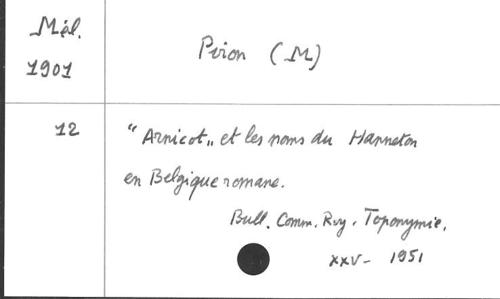 Mél.
1901
Piron (M)
12
"Arnicot„ et les noms du Hanneton
en Belgique romane.
Bull. Comm. Roy. Toponymie.
XXV- 1951